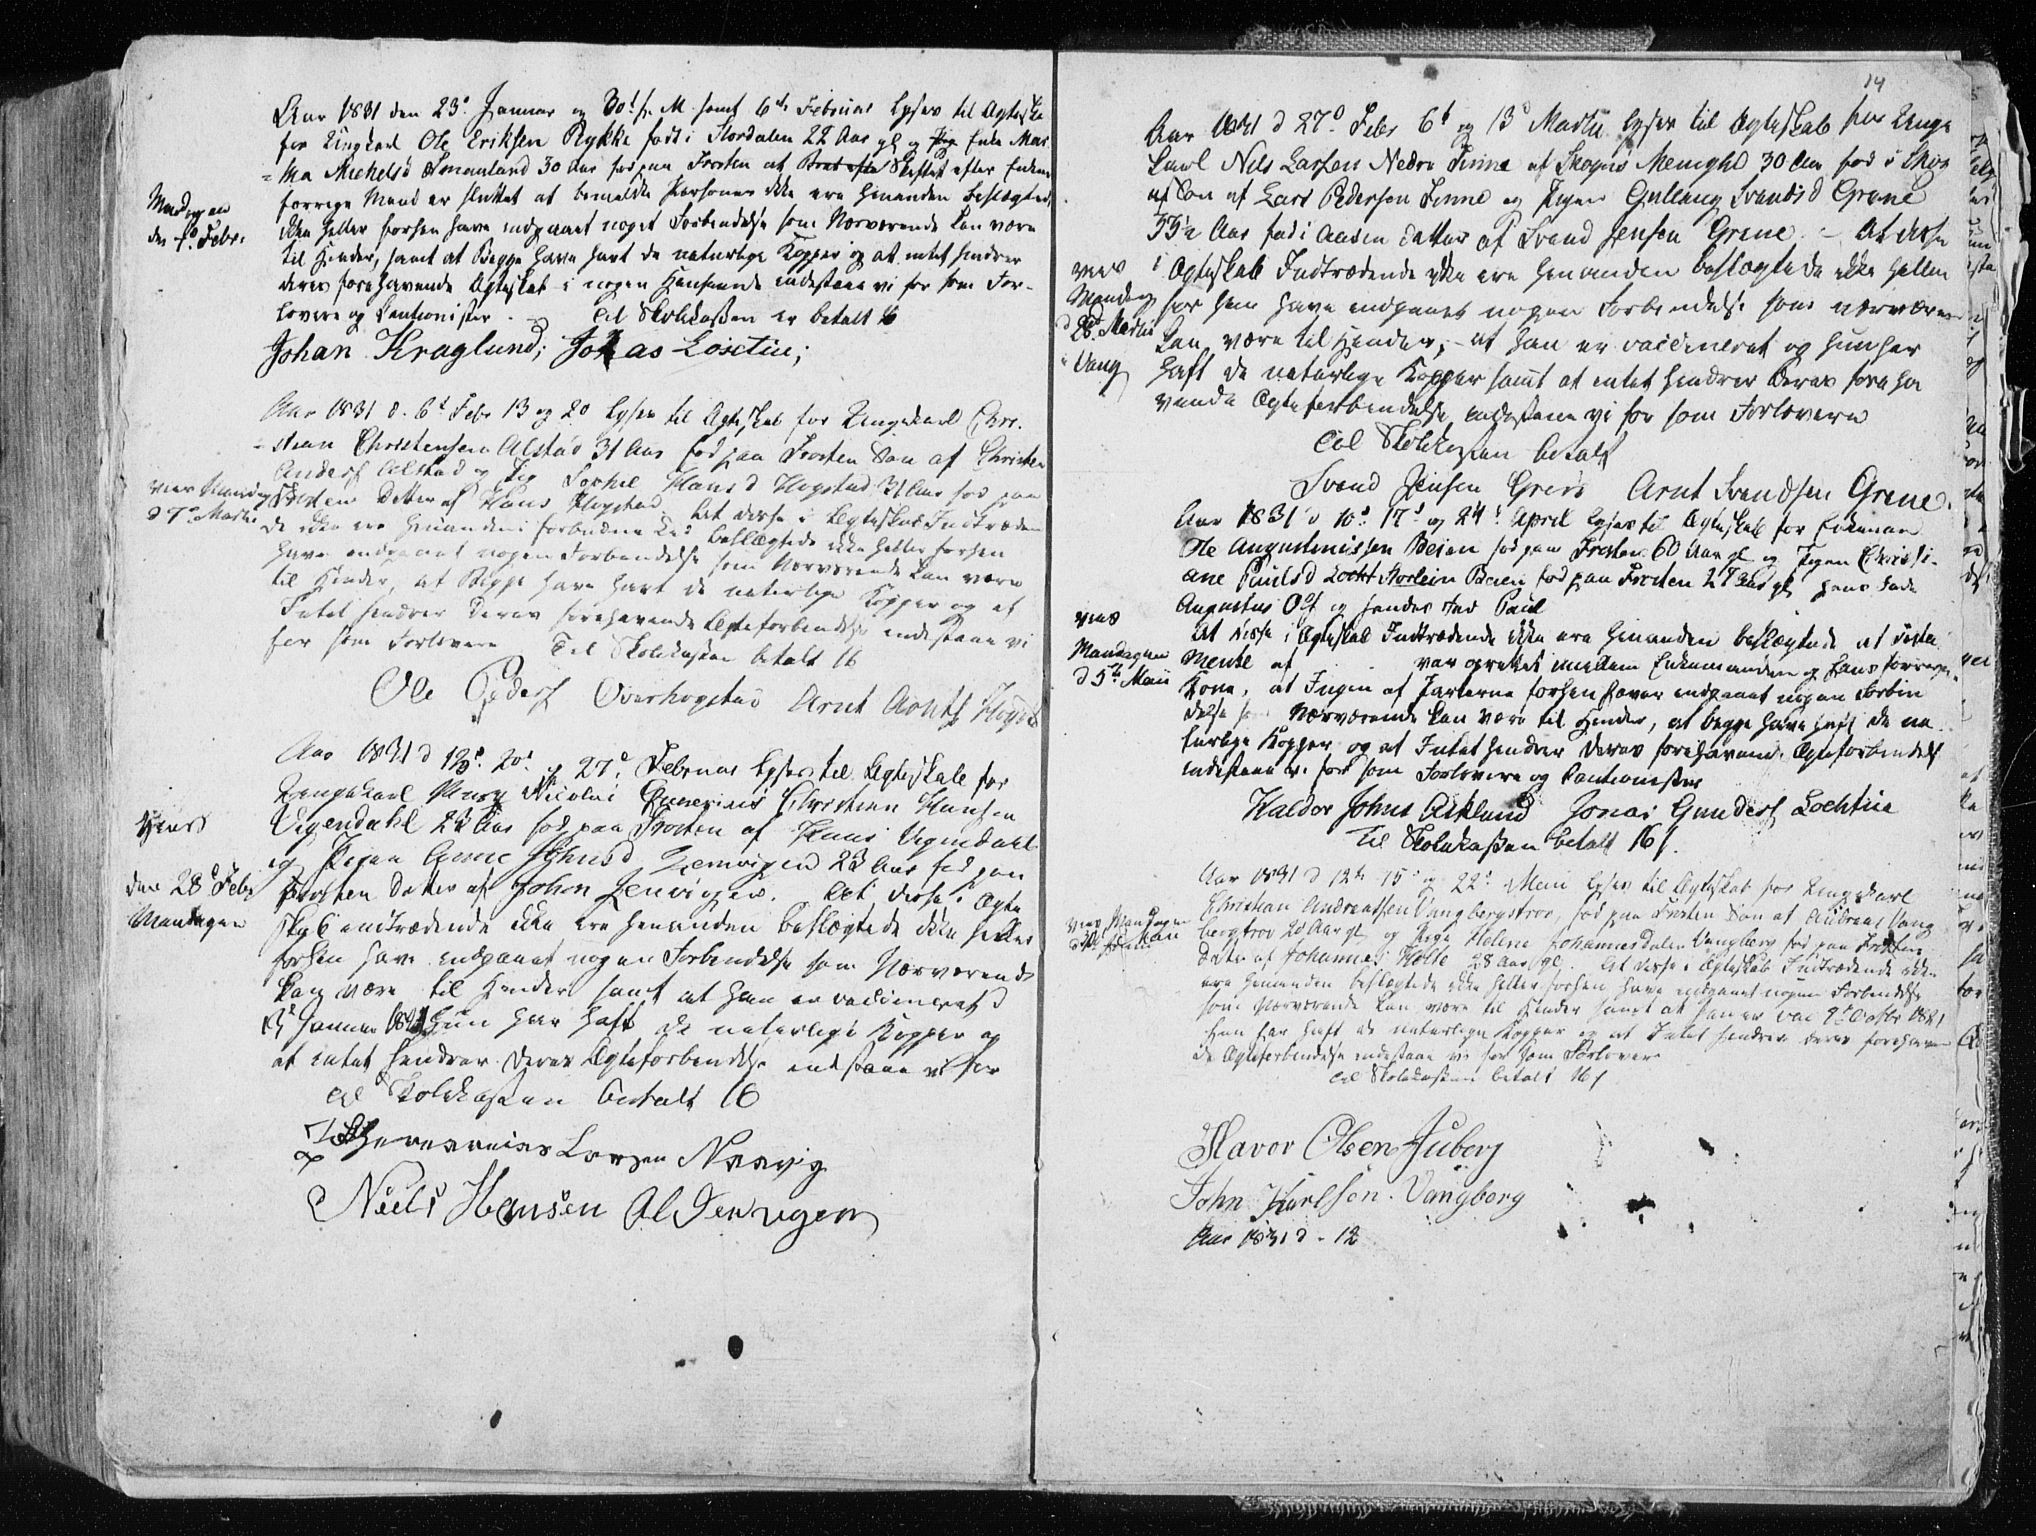 Aar 1831 den 23d Januar og 30t s. M. samt 6te Februar lyses til Ægteska
for Ungkarl Ole Eriksen Rykke født i Stordalen 22 Aar gl og Pige Enke Mar
=tha Michelsd Smaaland 30 Aar fød paa Frosten at Skiftet efter Enkens
forrige Mand er sluttet at bemeldte Personer ikke ere hinanden beslægtede
ikke heller forhen have indgaaet noget Forbindelse som Nærværende kan være
til Hinder, samt at Begge have havt de naturlige Kopper og at intet hindrer
deres forehavende Ægteskab i nogen Henseende indestaae vi for som For-
lovere og Cautionister. Til Skolekassen er betalt 16
Mandagen
den 7d Febr.
Johan Kraglund; Jonas Loxtin;
Aar 1831 d. 6t Febr 13 og 20 lyses til Ægteskab for Ungekarl Chri-
=stian Christensen Alstad 31 Aar fød paa Frosten Søn af Christen
Anders Alstad og Pig Hans d Hogstad 31 Aar fød paa
Frosten Datter af Hans Hogstad. At disse i Ægteskab Indtræden
de ikke ere hinanden i forbudne Led beslægtede ikke heller forhen
have indgaaet nogen Forbindelse som Nærværende kan være
til Hinder, at Begge have havt de naturlige Kopper og at
Intet hindrer deres forehavende Ægteforbindelse indestaae vi
for som Forlovere Til Skolekassen betalt 16
viet Mandag
d 7d Martii
Ole Peders Overhogstad Arnt Arnts Hogst
Aar 1831 d 13d 20d og 27d Februar lyses til Ægteskab for
Ungekarl Nicolai Christian Hansen
Vigendahl 22 Aar fød paa Frosten af Hans Vigendahl
og Pigen Anne Johnsd 23 Aar fød paa
Frosten Datter af Johan. At disse i Ægte
skab indtrædende ikke ere hinanden beslægtede ikke heller
forhen have indgaaet nogen Forbindelse som Nærværende
kan være til Hinder samt at han er vaccineret d
Januar hun har haft de naturlige Kopper og
at intet hindrer deres Ægteforbindelse indestaae vi for
Til Skolekassen betalt 16
Viet
den 28d Febr
Mandagen
Larsen Naavig
Niels Hansen
14
Aar 1831 d 27d Febr 6t og 13d Martii lyses til Ægteskab for Unge
karl Nils Larsen Nedre Finne af Skogns Menighd 30 Aar fød i Skog
Søn af Lars Pedersen Finne og Pigen Gullaug Svendsd Grene
Aar fød i Aasen Datter af Svend Jensen Grene. - At disse
i Ægteskab Indtrædende ikke ere hinanden beslægtede ikke heller
forhen have indgaaet nogen Forbindelse som nærværen
kan være til Hinder, - at han er vaccineret og hun har
haft de naturlige Kopper samt at intet hindrer deres foreha
vende Ægteforbindelse indestaae vi for som Forlovere
Til Skolekassen betalt
viet
Mandag
d 28d Martii
i Vang
Svend Jensen Grens Arnt Svendsen Grene.
Aar 1831 d 10d 17d og 24d April lyses til Ægteskab for Enkeman
Ole Augustinussen Beien fød paa Frosten 60 Aar gl og Pigen Christi-
ane Paulsd Beien fød paa Frosten 27 Aar gl hans Fader
Augustus og hendes Fad Paul
At disse i Ægteskab Indtrædende ikke ere hinanden beslægtede at Testa
mente af var oprettet mellem Enkemanden og hans forrige
Kone, at Ingen af Parterne forhen haver indgaaet nogen Forbin
delse som Nærværende kan være til Hinder, at begge have haft de na
turlige Kopper og at Intet hindrer deres forehavende Ægteforbindelse
indestaae vi for som Forlovere og Cautionister
viet
Mandagen
d 5te Maii
Haldor Johns Aklund Jonas Gunders Lochtin
Til Skolekassen betalt 16 s.
Aar 1831 d 12te 15d og 22d Maii lyses til Ægteskab for Ungekarl
Christian Andreassen Vangbergtrøe, fød paa Frosten Søn af Andreas Vang
bergtrøe 20 Aar gl og Pige Helene Johannesdatter Vangberg fød paa Frosten
Datter af Johannes Holte 28 Aar gl. At disse i Ægteskab Indtrædende ikke
ere hinanden beslægtede ikke heller forhen have indgaaet nogen Forbindelse
som Nærværende kan være til Hinder samt at han er vac 9d Octbr 1821
hun har haft de naturlige Kopper og at Intet hindrer deres forehaven
de Ægteforbindelse indestaae vi for som Forlovere
Til Skolekassen betalt 16 s
viet Mandagen
Havor Olsen Juberg
John Karlsen Vangberg
Aar 1831 d. 12